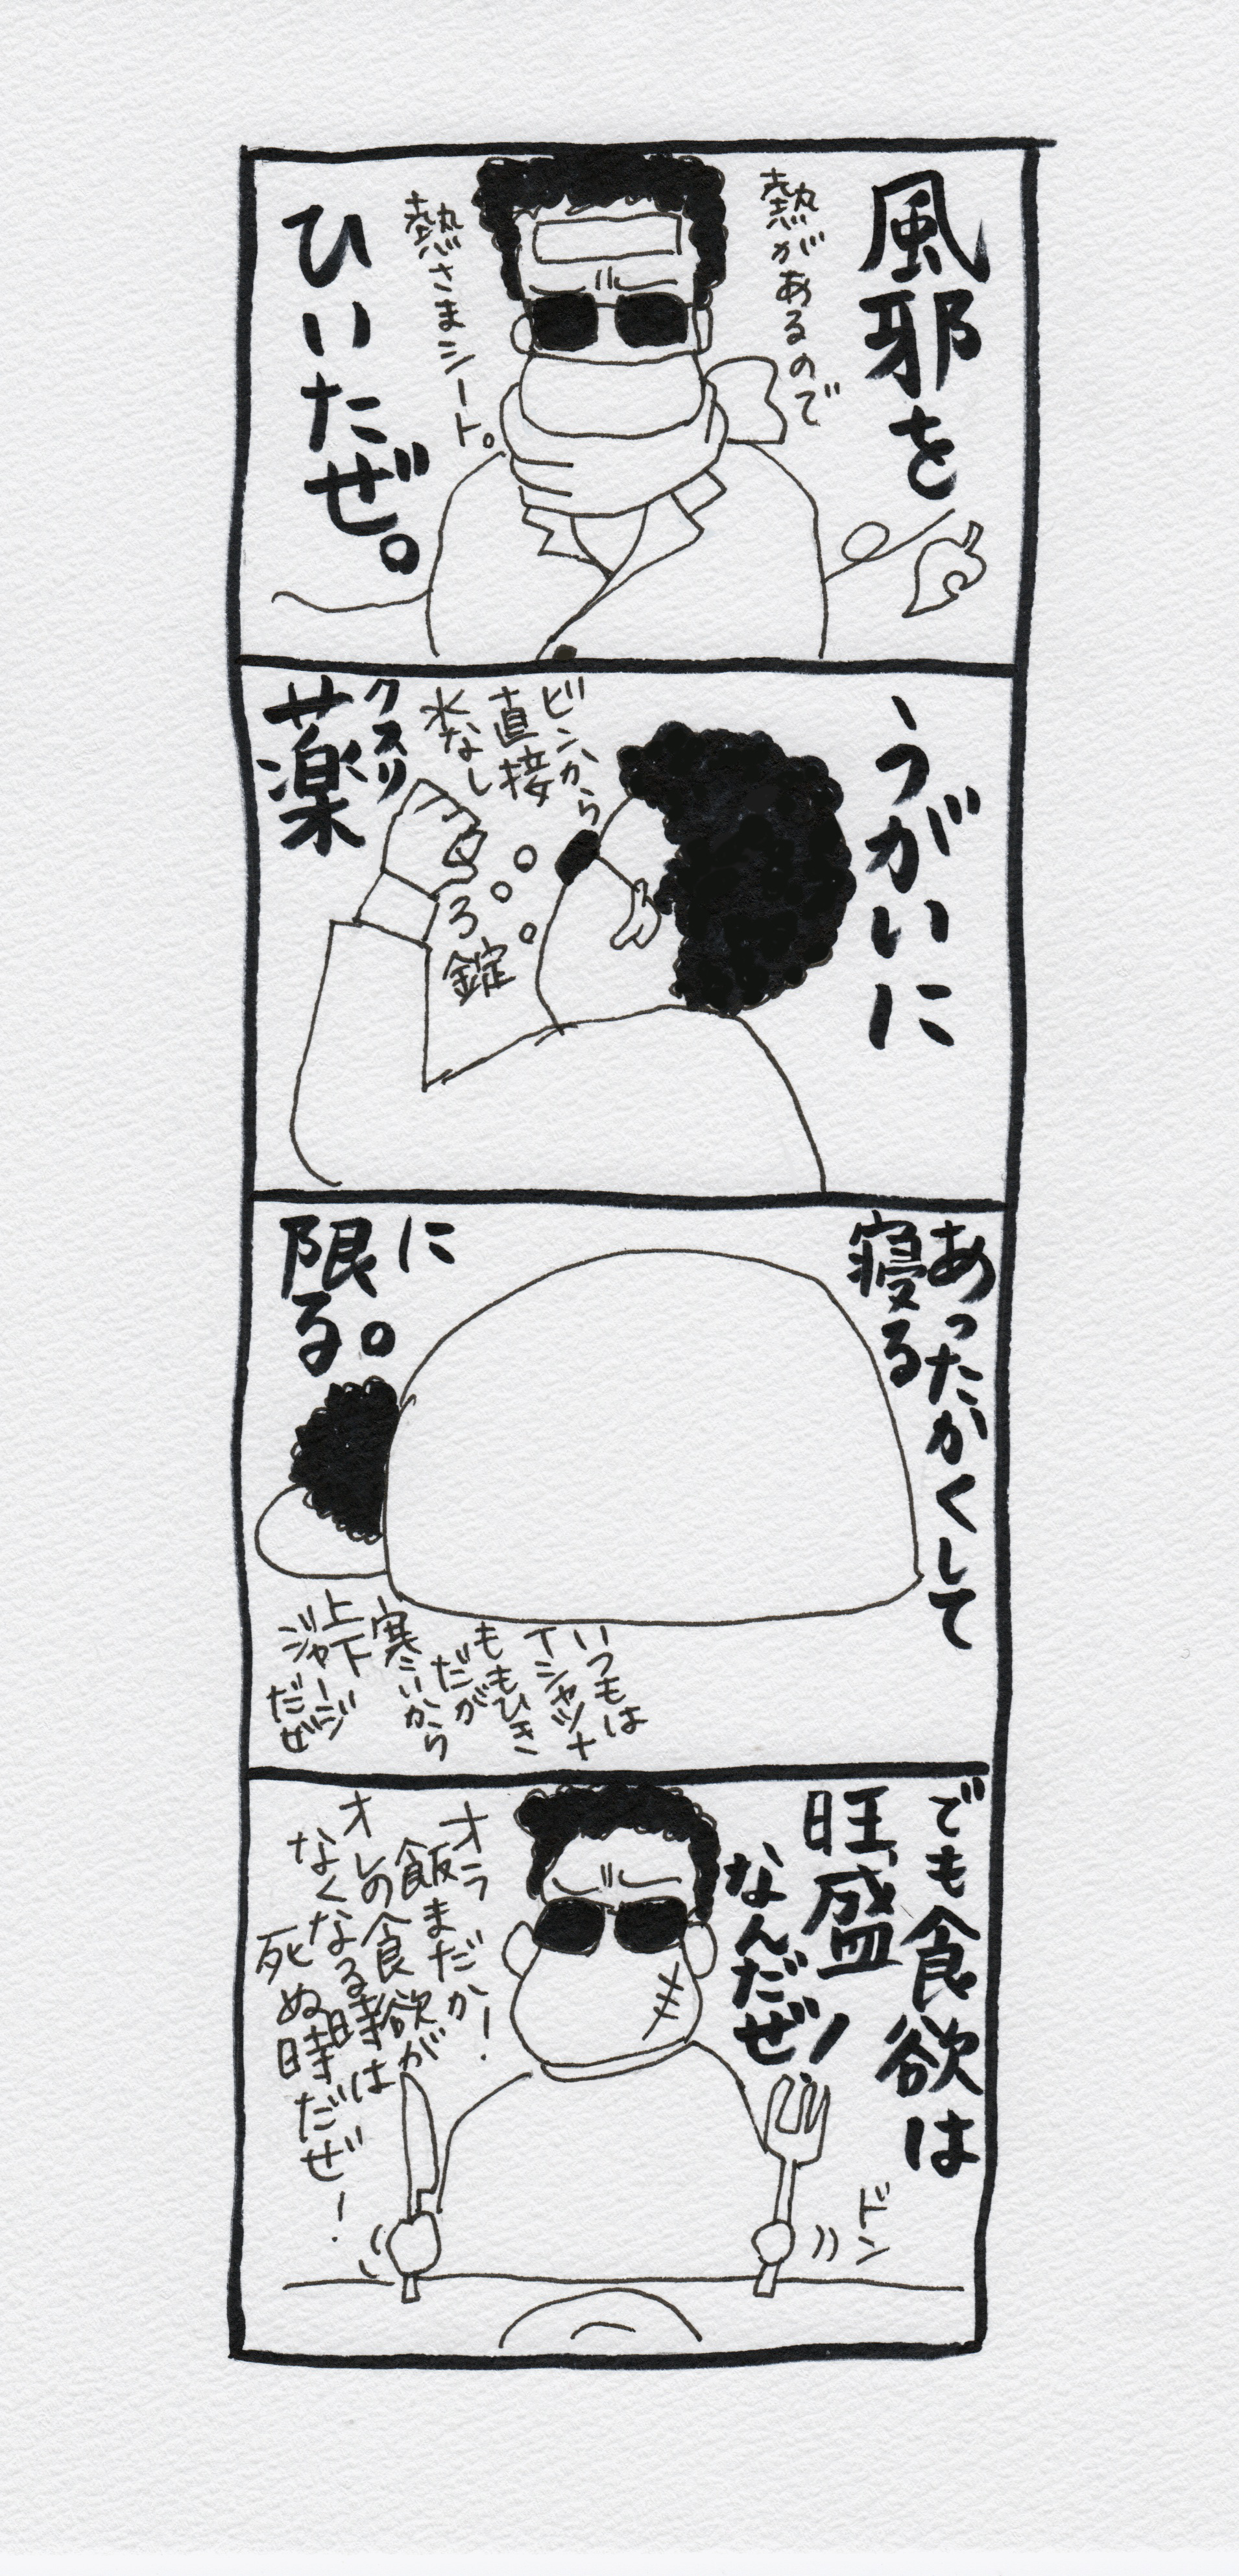 風邪を
熱があるので
熱さまシート。
ひいたぜ。
うがいに
ビンから
直接
水なし
3錠
クスリ
薬
あったかくして
寝る
に
限る。
いつもは
Tシャツ+
ももひき
だが
寒いから
上下
ジャージ
だぜ
でも食欲は
旺盛
なんだぜ!
オラ
飯まだか!
オレの食欲が
なくなる時は
死ぬ時だぜ!
ドン